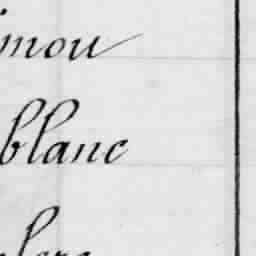 imou
blanc